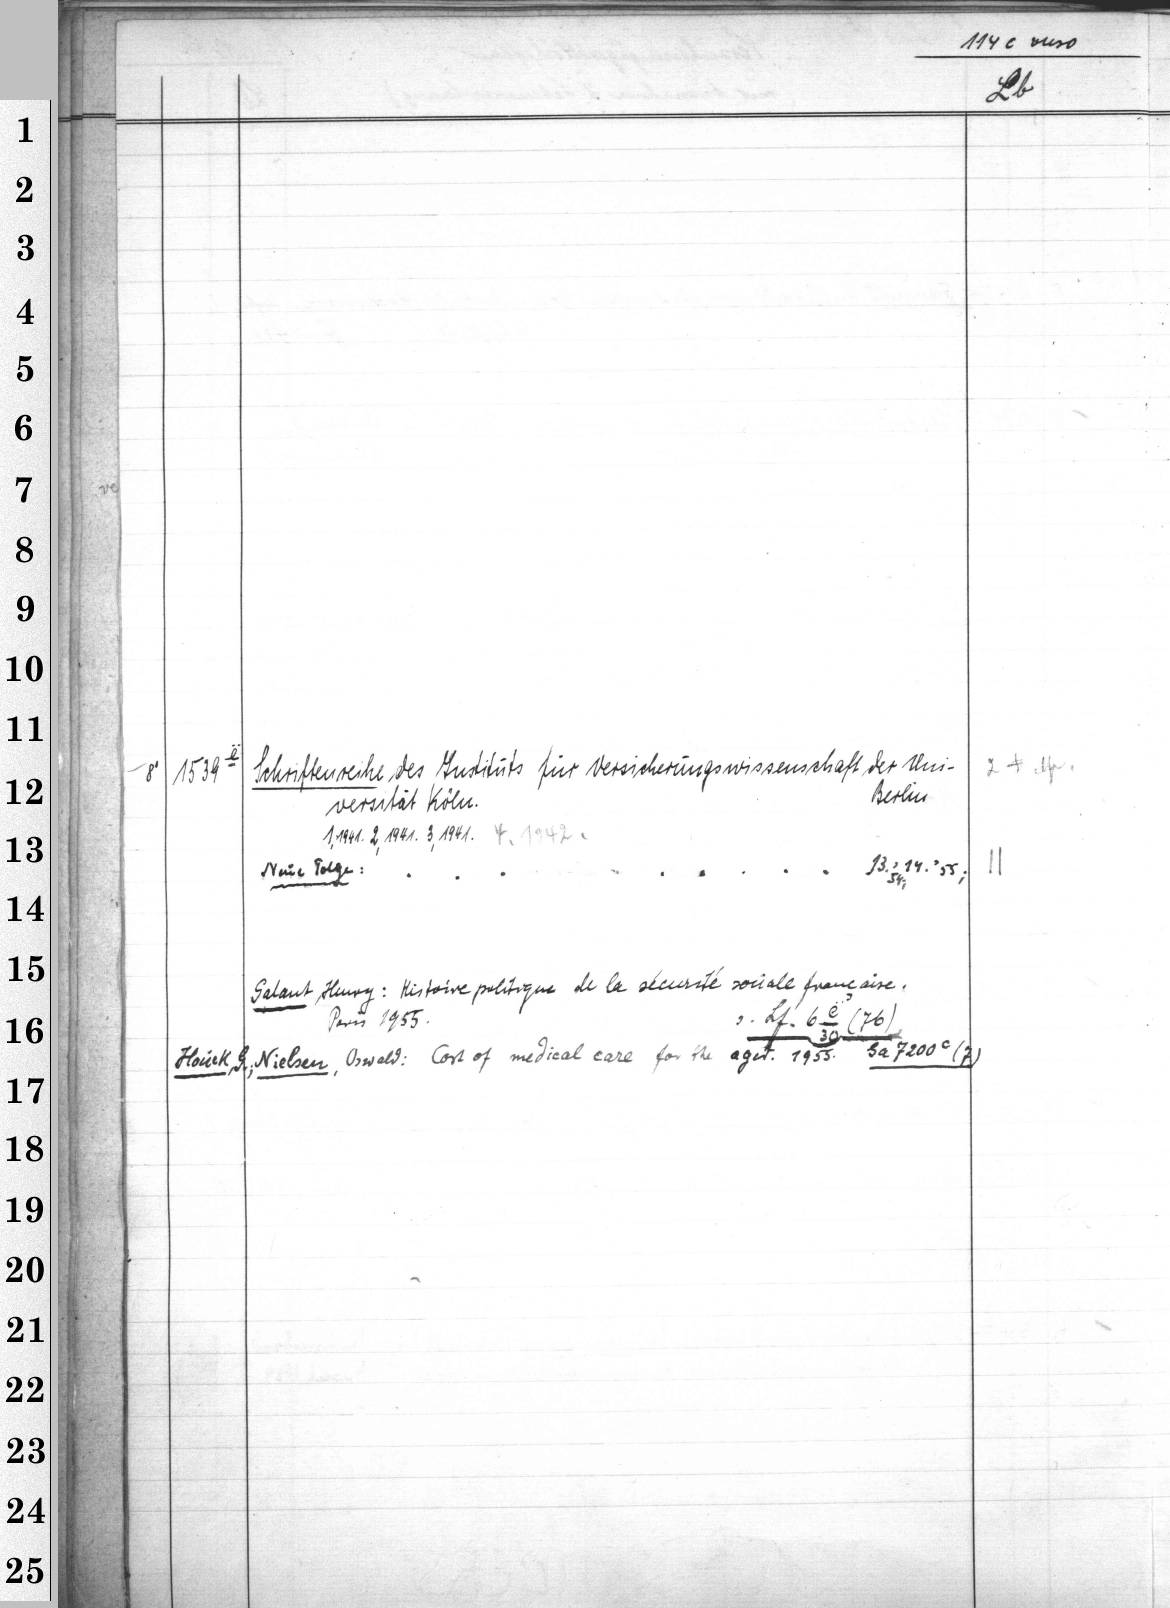 114 c verso
Lb
1
2
3
4
5
6
7
8
9
10
11
8° 1539 ë Schriftenreihe des Instituts für Versicherungswissenschaft der Uni-
12
versität Köln. Berlin
1, 1941. 2, 1941. 3, 1941. 4. 1942.
13
Neue Folge: . . . . . . . . 13. '54; 14. '55; ||
14
15
Galant, Henry: Histoire politique de la sécurité sociale française.
16
Paris 1955. s. Lf. 6 ë/30 (76)
Houck, G.; Nielsen, Oswald: Cost of medical care for the aged. 1955. Ga 7200 c (7)
17
18
19
20
21
22
23
24
25